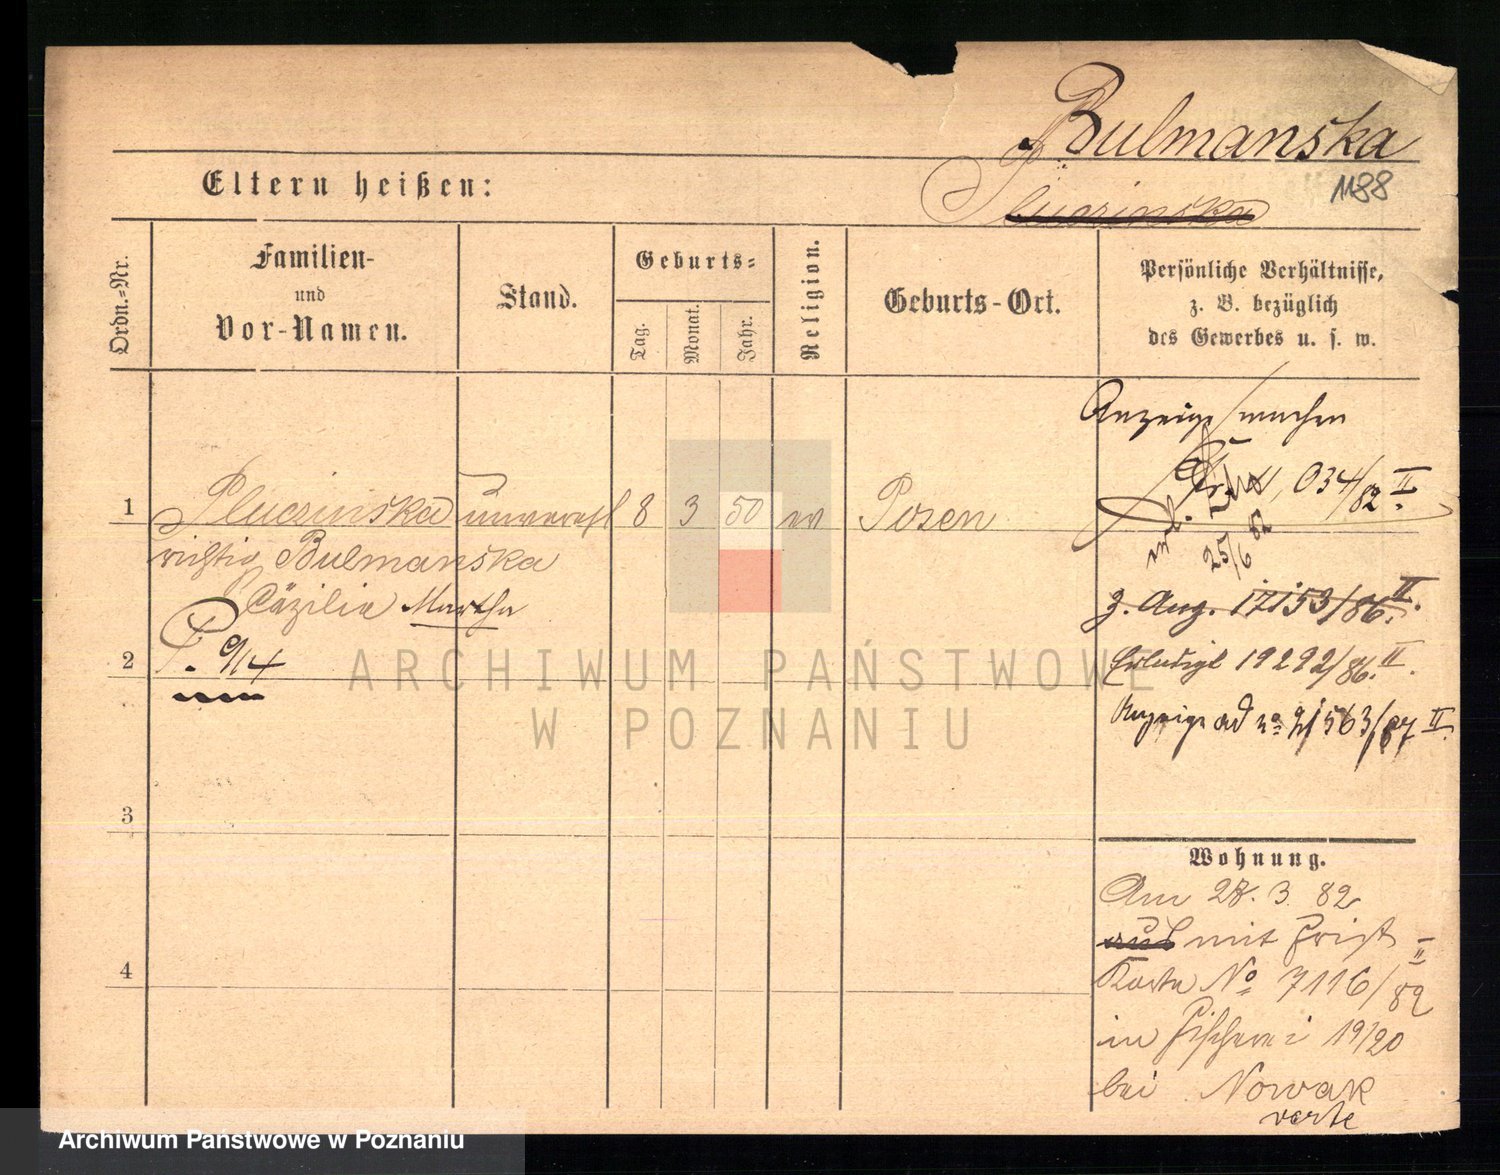 Bulmanska
Eltern heißen:
Pluczinska
1188
Ordn.=Nr.
Familien-
und
Vor-Namen.
Stand.
Geburts=
Tag.
Monat.
Jahr.
Religion.
Geburts-Ort.
Persönliche Verhältnisse,
z. B. bezüglich
des Gewerbes u. s. w.
Anzeige machen
034/82 II.
25/6 82
1
Pluczinska unverehl 8 3 50 ev Posen
richtig Bulmanska
Cäzilia Martha
2
P. 9/14
z. Anz. 17153/86. II.
Erledigt 19292/86. II.
Anzeige ad No 21563/87 II.
3
4
Wohnung.
Am 28. 3. 82
mit Frist
Karte No 7116/82 II
in Fischerei 19/20
bei Nowak
verte
ARCHIWUM PAŃSTWOWE
W POZNANIU
Archiwum Państwowe w Poznaniu